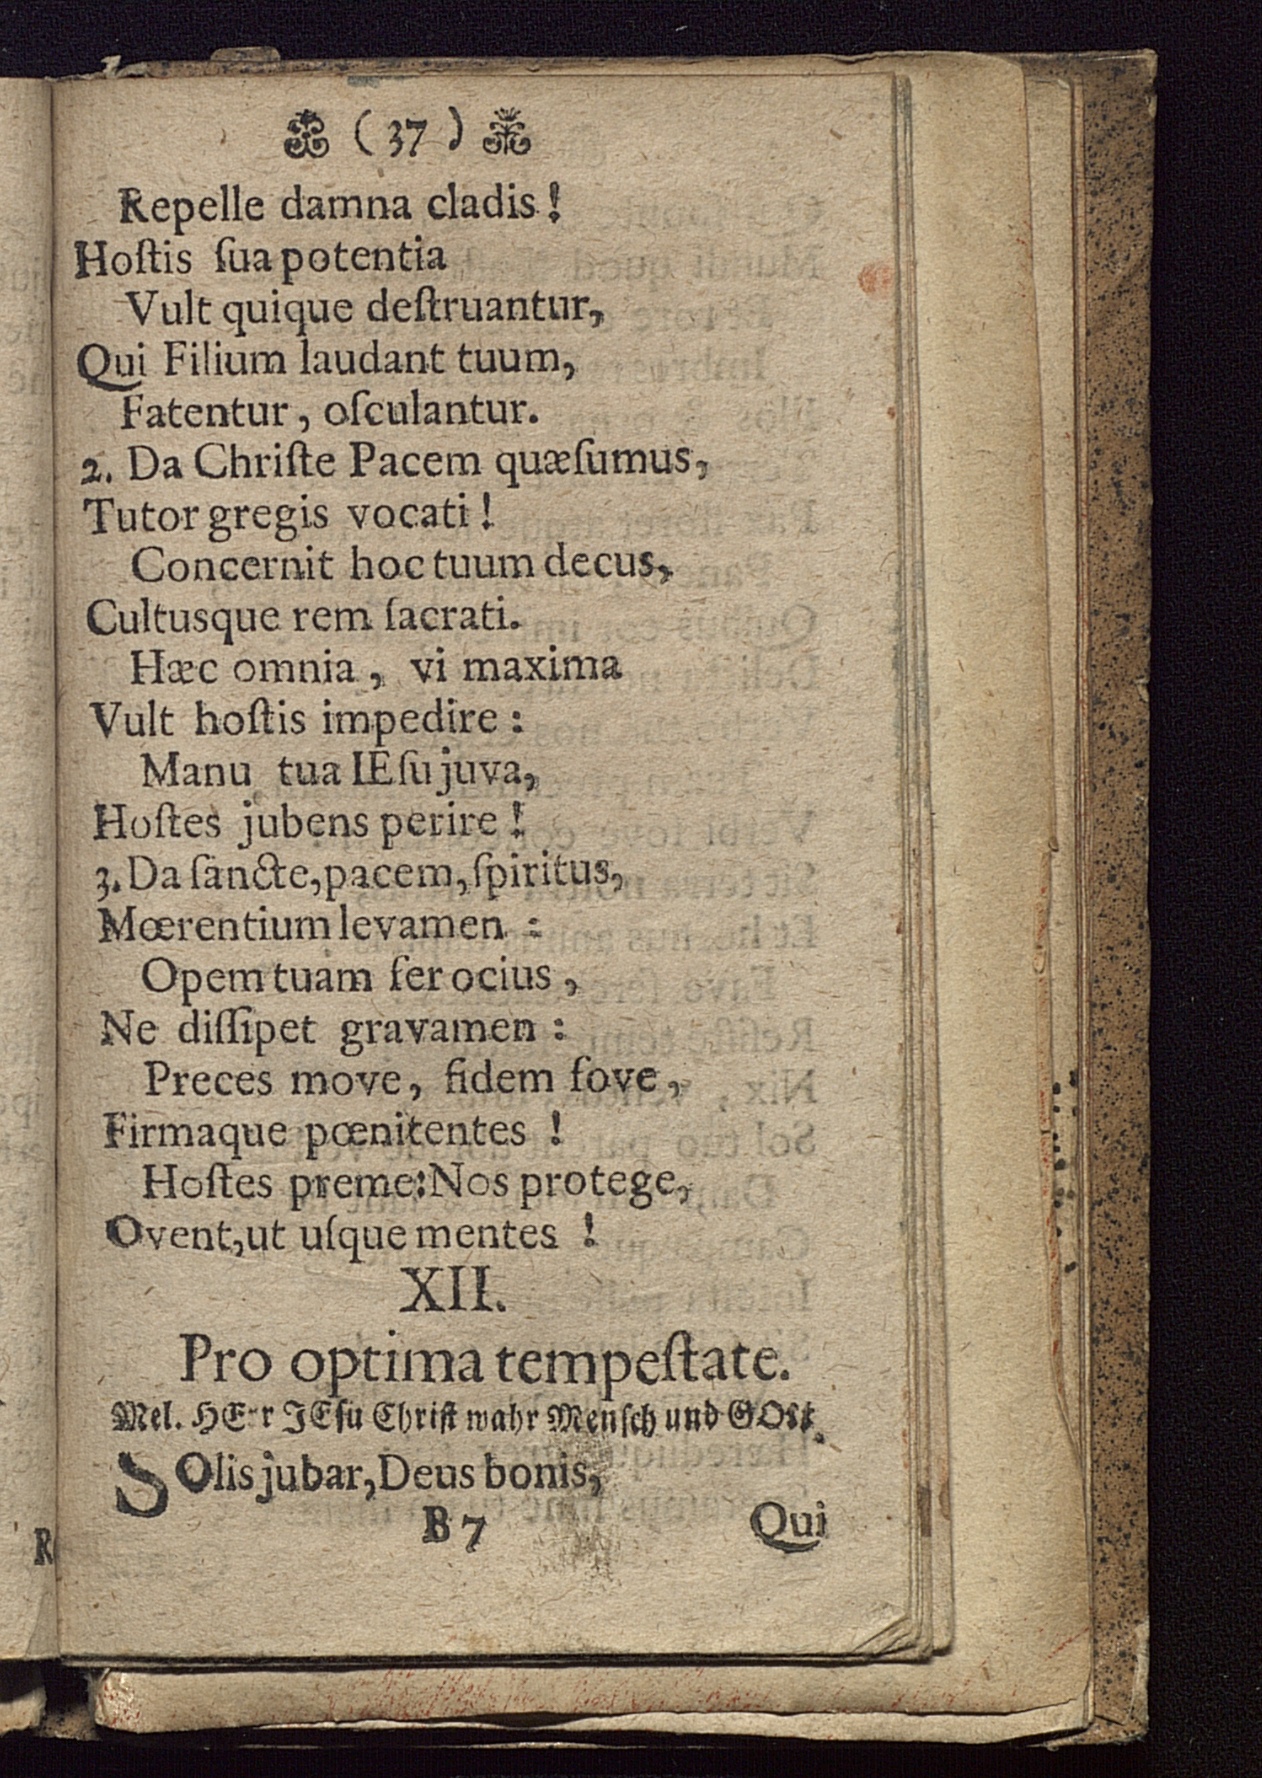 ( 37 )
Repelle damna cladis !
Hoſtis ſua potentia
Vult quique deſtruantur,
Qui Filium laudant tuum,
Fatentur, oſculantur.
2. Da Chriſte Pacem quæſumus,
Tutor gregis vocati !
Concernit hoc tuum decus,
Cultusque rem ſacrati.
Hæc omnia, vi maxima
Vult hoſtis impedire :
Manu tua IEſu juva,
Hoſtes jubens perire !
3. Da ſancte, pacem, ſpiritus,
Mœrentium levamen :
Opem tuam fer ocius,
Ne diſſipet gravamen :
Preces move, fidem fove,
Firmaque pœnitentes !
Hoſtes preme: Nos protege,
Ovent, ut uſque mentes !
XII.
Pro optima tempeſtate.
Mel. HErr JEſu Chriſt wahr Menſch und GOtt.
SOlis jubar, Deus bonis,
B 7
Qui
R